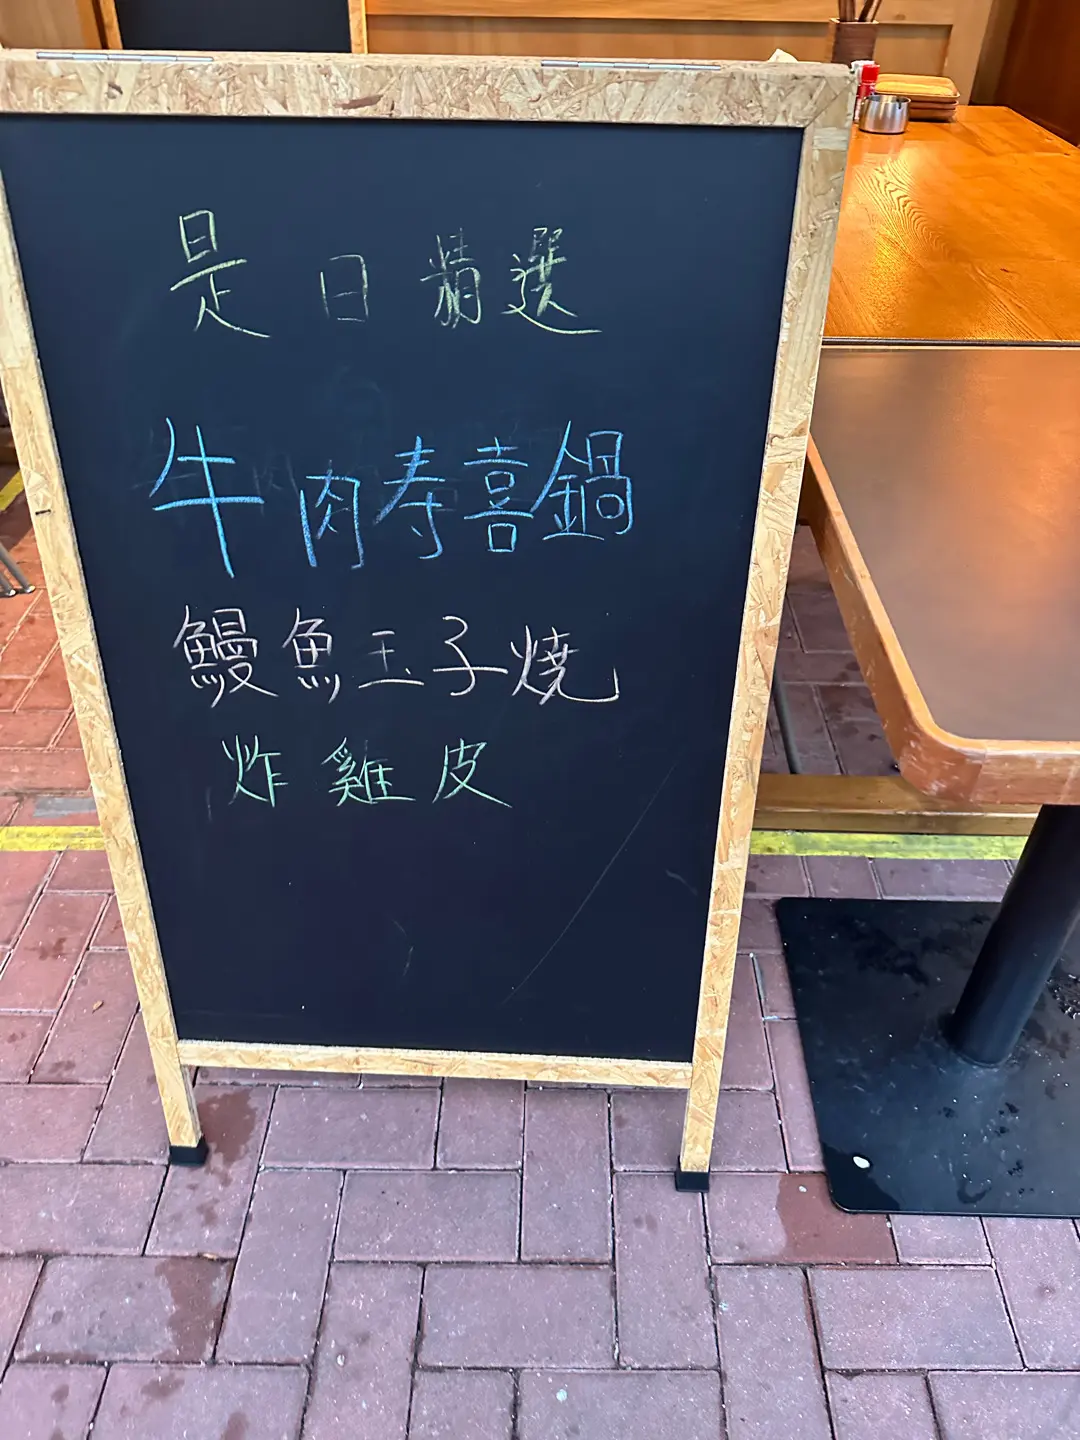 是日精選
牛肉寿喜鍋
鰻魚玉子燒
炸雞皮